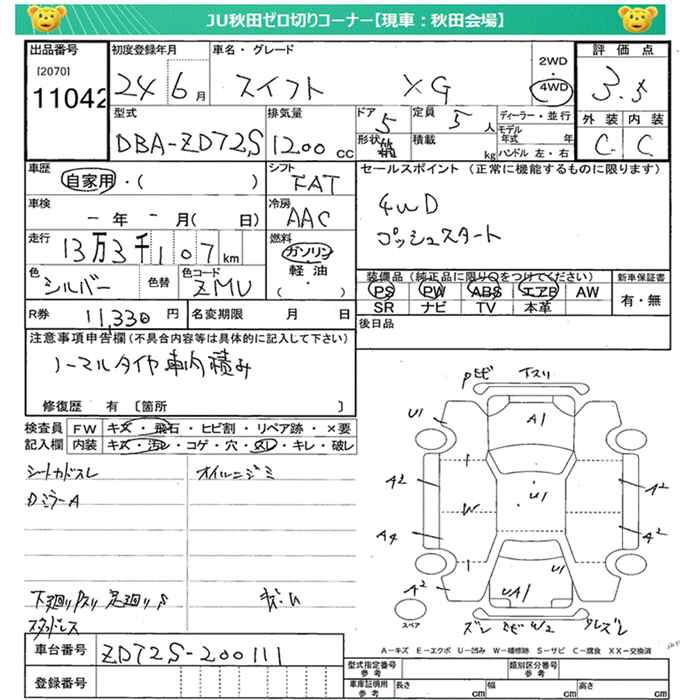 JU秋田ゼロ切りコーナー【現車：秋田会場】
出品番号
[2070]
11042
初度登録年月
24 6月
車名・グレード
スイフト XG
2WD
・
4WD
評価点
3.5
外装 内装
C C
型式
DBA-ZD72S
排気量
1200 cc
ドア 5
形状
定員 5人
積載 kg
ディーラー・並行
モデル年式 年
ハンドル 左・右
車歴
自家用・( )
シフト
FAT
車検
－年－月( 日)
冷房
AAC
走行
13万3千107km
燃料
ガソリン
軽油
( ・ )
色
シルバー
色替
色コード
ZMU
R券 11,330円
名変期限 月 日
セールスポイント (正常に機能するものに限ります)
4WD
プッシュスタート
装備品(純正品に限り○をつけてください)
PS PW ABS エアB AW
SR ナビ TV 本革
新車保証書
有・無
後日品
注意事項申告欄(不具合内容等は具体的に記入して下さい)
ノーマルタイヤ車内積み
修復歴 有 〔箇所 〕
検査員記入欄
FW キズ・飛石・ヒビ割・リペア跡・×要
内装 キズ・汚レ・コゲ・穴・スレ・キレ・破レ
シートカドスレ
オイルニジミ
DミラーA
下廻りPスリ 足廻りS
スタッドレス
車台番号 ZD72S-200111
登録番号
U1
A1
A2
A2
U1
W
A4
A2
A2
U1
UA1
スペア
A－キズ E－エクボ U－凹み W－補修跡 S－サビ C－腐食 XX－交換済
型式指定番号 参考
類別区分番号 参考
車庫証明用 参考
長さ cm
幅 cm
高さ cm